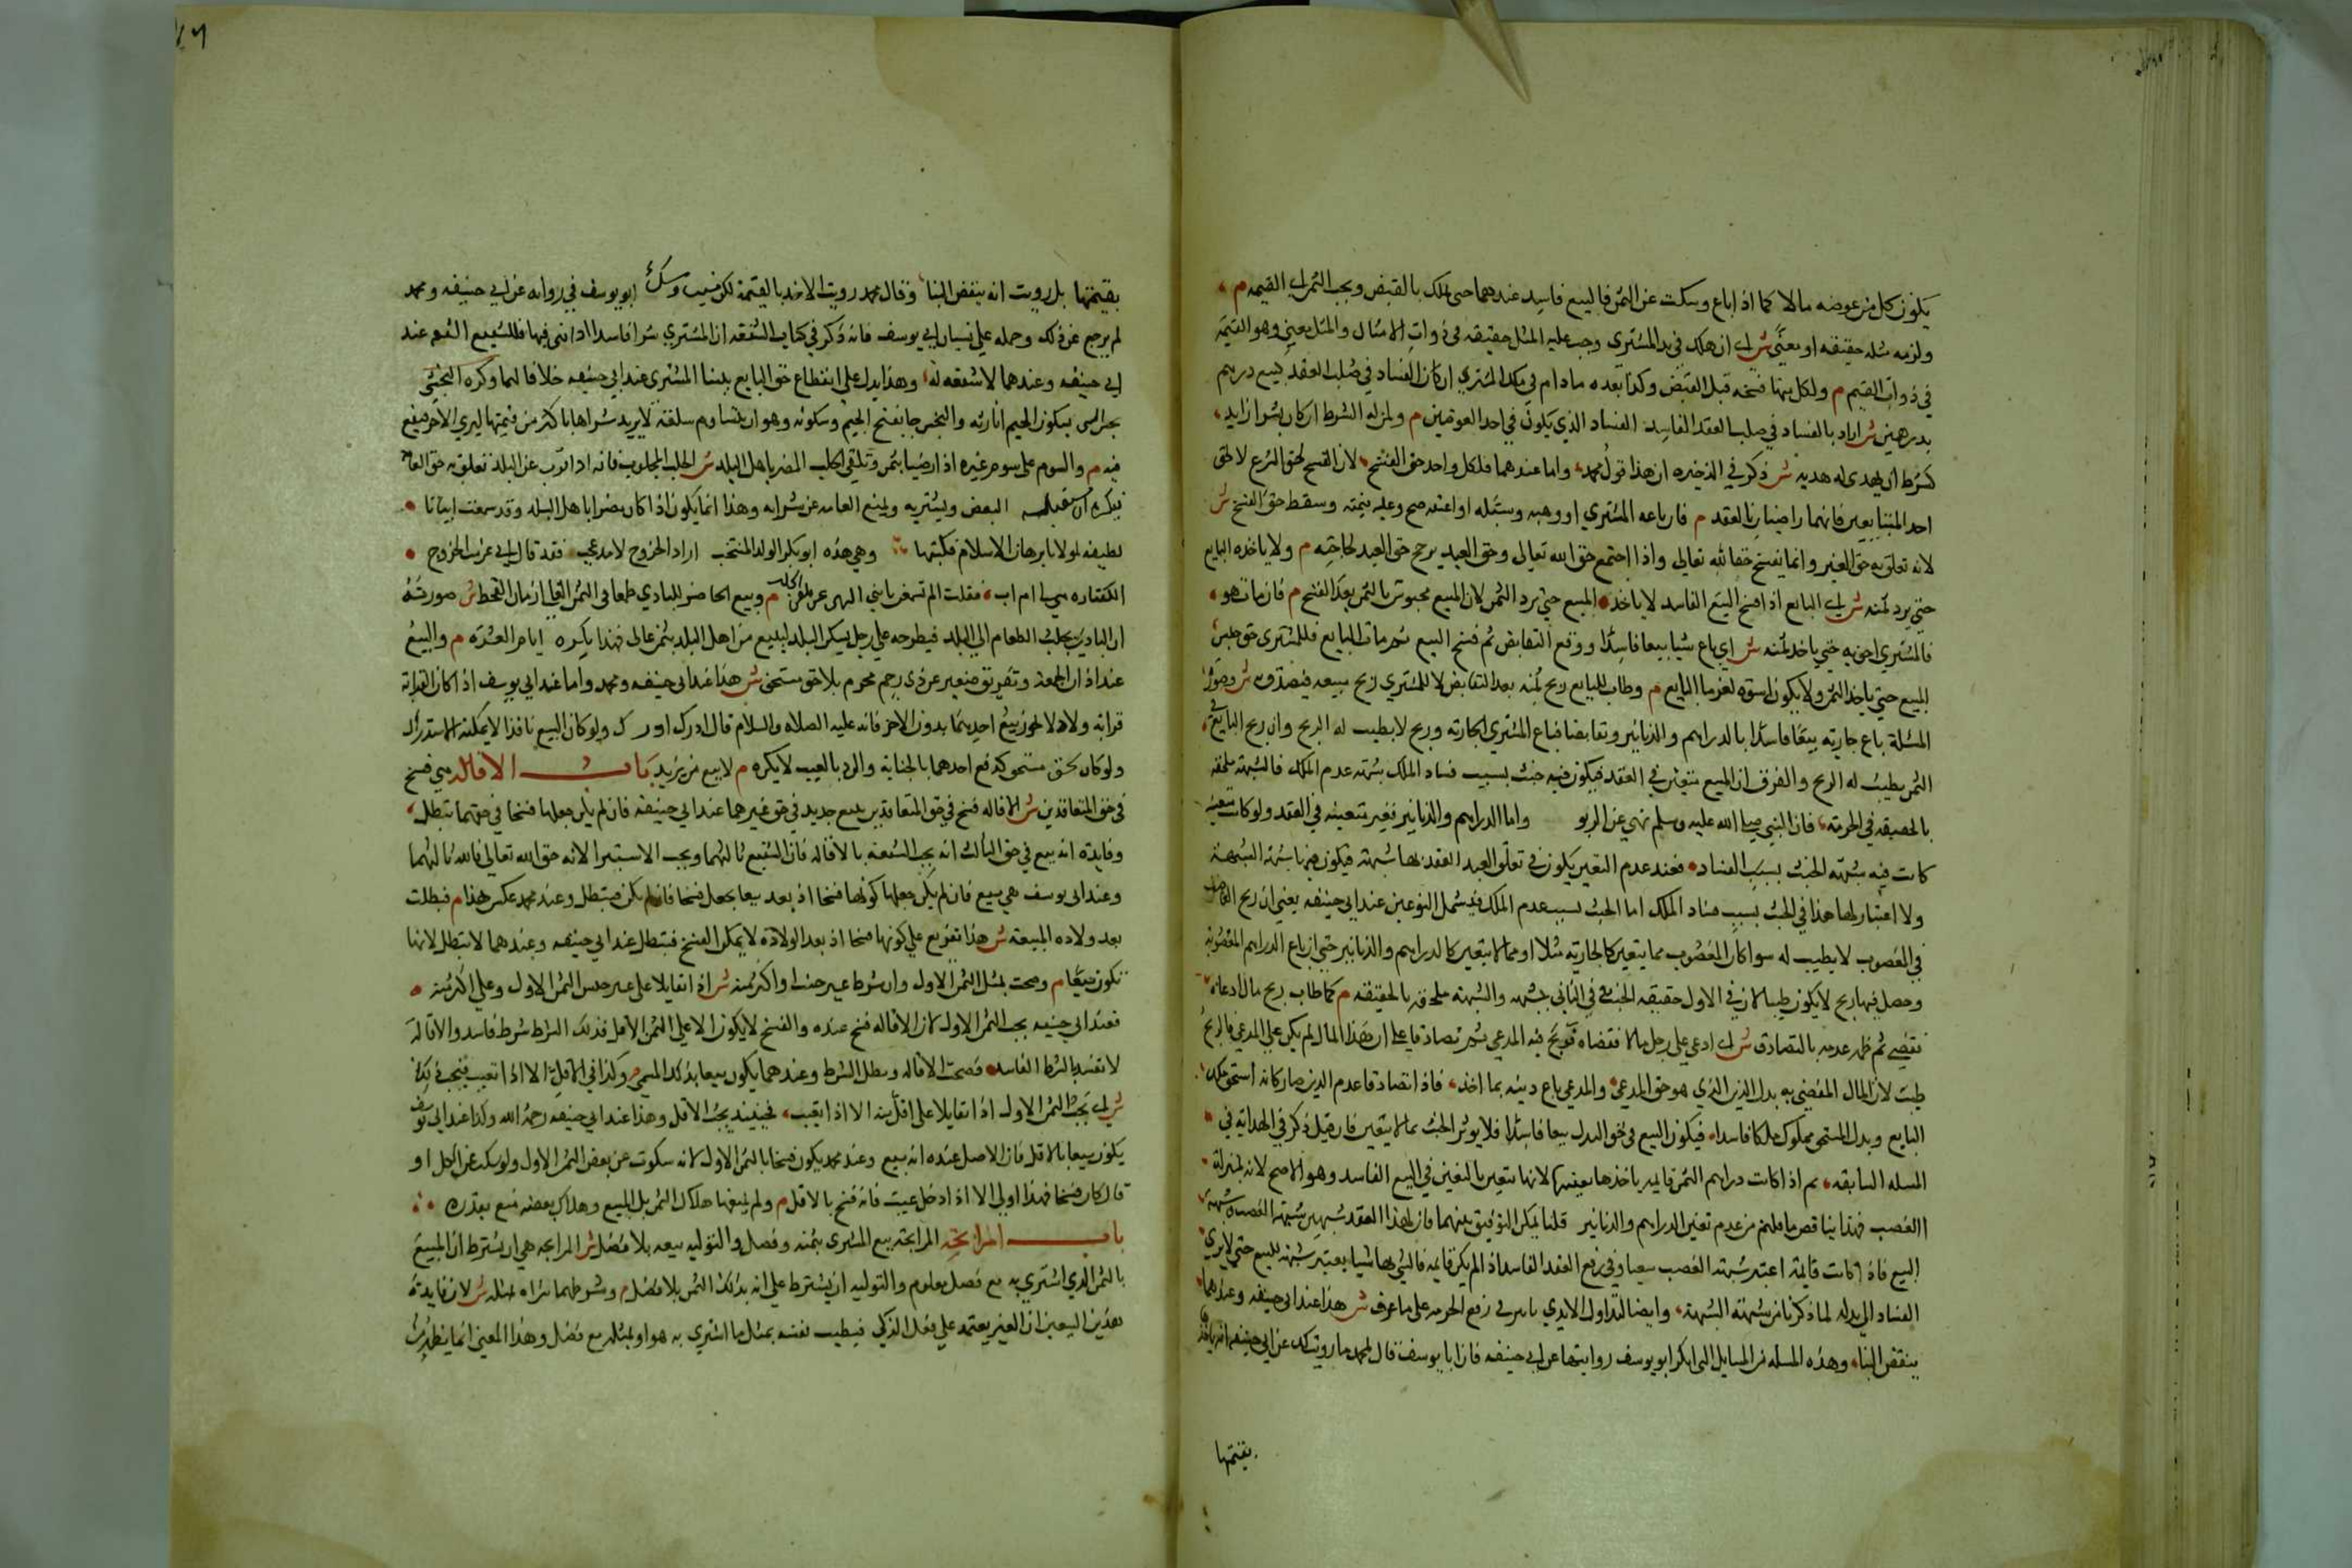 يكون كل من عوضه مالا كما اذا باع وسكت عن الثمن فالبيع فاسد عندهما حتى يملك بالقبض ويجب الثمن اي القيمه م
ولزمه مثله حقيقه او معنى ش اي ان هلك في يد المشتري وجب عليه المثل حقيقه في ذوات الامثال والمثل معنى وهو القيمة
في ذوات القيم م ولكل منهما فسخه قبل القبض وكذا بعده ما دام في ملك المشتري ان كان الفساد في صلب العقد كبيع درهم
بدرهمين ش اراد بالفساد في صلب العقد الفاسد الفساد الذي يكون في احد العوضين م ولمن له الشرط ان كان بشرط زايد
كشرط ان يهدى له هديه ش ذكر في الذخيره ان هذا قول محمد واما عندهما فلكل واحد حق الفسخ لان الفسخ لحق الشرع لا لحق
احد المتبايعين فانهما راضيان بالعقد م فان باعه المشتري او وهبه وسلمه او اعتقه صح وعليه قيمته وسقط حق الفسخ ش
لانه تعلق به حق الغير وانما يفسخ حقا لله تعالى واذا اجتمع حق الله تعالى وحق العبد يرجح حق العبد لحاجته م ولا ياخذه البايع
حتى يرد ثمنه ش اي البايع اذا فسخ البيع الفاسد لا ياخذ المبيع حتى يرد الثمن لان المبيع محبوس بالثمن بعد الفسخ م فان مات هو
فالمشتري احق به حتى ياخذ ثمنه ش اي باع شيا بيعا فاسدا ووقع التقابض ثم فسخ البيع ثم مات البايع فللمشتري حق حبس
المبيع حتى ياخذ الثمن ولا يكون اسوة لغرما البايع م وطاب للبايع ربح ثمنه بعد التقابض لا للمشتري ربح مبيعه فيتصدق به ش وصورة
المسئلة باع جاريه بيعا فاسدا بالدراهم والدنانير وتقابضا فباع المشتري الجاريه وربح لا يطيب له الربح وان ربح البايع في
الثمن يطيب له الربح والفرق ان المبيع متعين في العقد فيكون فيه خبث بسبب فساد الملك شبهة عدم الملك فالشبهة ملحقه
بالحقيقه في الحرمه فان النبي صلى الله عليه وسلم نهى عن الربو واما الدراهم والدنانير فغير متعينه في العقد ولو كانت متعينه
كانت فيه شبهة الخبث بسبب الفساد فعند عدم التعين يكون في تعلق العبد العقد بها شبهة فيكون فيها شبهة الشبهة
ولا اعتبار لها هذا في الخبث بسبب فساد الملك اما الخبث بسبب عدم الملك فيشمل النوعين عند ابي حنيفه يعني ان ربح الغاصب
في المغصوب لا يطيب له سوا كان المغصوب مما يتعين كالجارية مثلا او مما لا يتعين كالدراهم والدنانير حتى ان باع الدراهم المغصوبه
وحصل فيها ربح لا يكون طيبا لان في الاول حقيقه الخبث وفي الثاني شبهه والشبهه ملحقه بالحقيقه م كما طاب ربح مال ادعاه
فقضى ثم ظهر عدمه بالتصادق ش اي ادعى على رجل مالا فقضاه فربح فيه المدعي ثم تصادقا على ان هذا المال لم يكن على المدعى فالربح
طيب لان المال المقضي به بدل الدين الذي هو حق المدعي والمدعي باع دينه بما اخذ فاذا تصادقا عدم الدين صار كانه استحق ملك
البايع وبدل المستحق مملوك ملكا فاسدا فيكون البيع في حق البدل بيعا فاسدا فلا يوثر الخبث بما لا يتعين فان قيل ذكر في الهداية في
المسله السابقه ثم اذا كانت دراهم الثمن قايمه ياخذها بعينها لانها تتعين بالتعين في البيع الفاسد وهو الاصح لانه بمنزلة
الغصب فهذا يناقض ما قلتم من عدم تعين الدراهم والدنانير قلنا يمكن التوفيق بينهما فان لهذا العقد شبهين شبهة الغصب وشبهة
البيع فاذا كانت قايمة اعتبر شبهة الغصب سعيا في رفع العقد الفاسد اذا لم يكن قايمه فالمشتري بها شيا يعتبر شبهة البيع حتى لا يسري
الفساد الى بدله لما ذكرنا من شبهة الشبهة وايضا لتداول الايدي تاثير في رفع الحرمه على ما عرف ش هذا عند ابي حنيفه وعندهما
ينقض البنا وهذه المسله من المسايل التي انكر ابو يوسف روايتها عن ابي حنيفه فان ابا يوسف قال لمحمد ما رويت لك عن ابي حنيفه انه ياخذ
بقيمتها
بقيمتها بل رويت انه ينقض البنا وقال محمد رويت الاخذ بالقيمة لكن نسيت وشك ابو يوسف في روايه عن ابي حنيفه ومحمد
لم يرجع عن ذلك وحمله على نسيان ابي يوسف فانه ذكر في كتاب الشفعه ان المشتري شرا فاسدا اذا بنى فيها فللشفيع الشفعه عند
ابي حنيفه وعندهما لا شفعه له وهذا يدل على انقطاع حق البايع ببنا المشتري عند ابي حنيفه خلافا لهما وكره النجش
النجش بسكون الجيم اثارته والنجش جا بفتح الجيم وسكونه وهو ان يستام سلعة لا يريد شراها باكثر من قيمتها ليرى الاخر فيقع
فيه م والسوم على سوم غيره اذا رضيا بثمن وتلقي الجلب المضر باهل البلد ش الجلب المجلوب فانه اذا قرب عن البلد تعلق به حق العامه
فيكره ان يستقبله البعض ويشتريه ويمنع العامه عن شرايه وهذا انما يكون اذا كان مضرا باهل البلد وقد سمعت ابياتا
لطيفه لمولانا برهان الاسلام فكتبتها وهي هذه ابو بكر الولد المنتخب اراد الخروج لامر عجب فقد قال اني عزمت الخروج
لكفتاره هي لي ام اب فقلت الم تسمعن يا بني النهي عن تلقي الجلب م وبيع الحاضر للبادي طمعا في الثمن الغالي زمان القحط ش صورته
ان البادي يجلب الطعام الى البلد فيطرحه على رجل يسكن البلد ليبيع من اهل البلد بثمن عالى فهذا يكره ايام العسره م والبيع
عند اذان الجمعة وتفريق صغير عن ذي رحم محرم بلا حق مستحق ش هذا عند ابي حنيفه ومحمد واما عند ابي يوسف اذا كان القرابة
قرابه ولاد لا يجوز بيع احدهما بدون الاخر فانه عليه الصلاه والسلام قال ادرك ادرك ولو كان البيع نافذا لا يمكنه الاستدراك
ولو كان بحق مستحق كدفع احدهما بالجناية والرد بالعيب لا يكره م لا بيع من يزيد باب الاقاله هي فسخ
في حق المتعاقدين ش الاقاله فسخ في حق المتعاقدين بيع جديد في حق غيرهما عند ابي حنيفه فان لم يكن جعلها فسخا في حقهما تبطل
وفايدة انه بيع في حق الثالث انه يجب الشفعه بالاقاله فان الشفيع ثالثهما ويجب الاستبرا لانه حق الله تعالى فالله ثالثهما
وعند ابي يوسف هي بيع فان لم يكن جعلها كونها فسخا اذ بعد بيعا يجعل فسخا فان لم يكن فتبطل وعند محمد عكس هذا م فبطلت
بعد ولاده المبيعه ش هذا تفريع على كونها فسخا اذ بعد الولاده لا يمكن الفسخ فتبطل عند ابي حنيفه وعندهما لا تبطل لانها
تكون بيعا م وصحت بمثل الثمن الاول وان شرط غير جنسه او اكثر منه ش اذا تقايلا على غير جنس الثمن الاول وعلى اكثر منه
فعند ابي حنيفه يجب الثمن الاول لان الاقاله فسخ عنده والفسخ لا يكون الا على الثمن الاول فذلك الشرط شرط فاسد والاقالة
لا تفسد بالشرط الفاسد فصحت الاقاله وبطل الشرط وعندهما يكون بيعا بذلك المسمى م وكذا في الاقل الا اذا تعيب فيجب ذلك
ش اي يجب الثمن الاول اذا تقايلا على اقل منه الا اذا تعيب فحينئذ يجب الاقل وهذا عند ابي حنيفه رحمه الله وكذا عند ابي يوسف
يكون بيعا بالاقل فان الاصل عنده انه بيع وعند محمد يكون فسخا بالثمن الاول لانه سكوت عن بعض الثمن الاول ولو سكت عن الكل او
قال كان فسخا فهذا اولى الا اذا دخل عيب فانه فسخ بالاقل م ولم يمنعها هلاك الثمن بل المبيع وهلاك بعضه منع بقدره
باب المرابحة المرابحة بيع المشترى بثمنه وفضل والتوليه بيعه بلا فضل ش المرابحه هي ان يشترط ان المبيع
بالثمن الذي اشترى به مع فضل معلوم والتوليه ان يشترط على انه بذلك الثمن بلا فضل م وشرطهما شراه بمثله ش لان فايدة
هذين البيعين ان الغير يعتمد على فعل الذكي فيطيب نفسه بمثل ما اشترى به هو او بمثله مع فضل وهذا المعنى انما يظهر ش